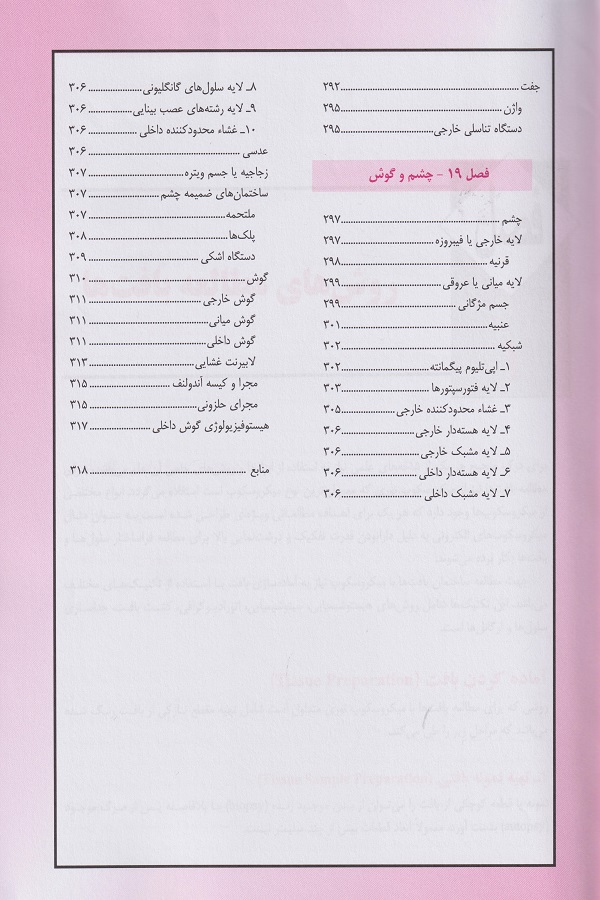 جفت ........ ۲۹۲
واژن ........ ۲۹۵
دستگاه تناسلی خارجی ........ ۲۹۵
فصل ۱۹ - چشم و گوش
چشم ........ ۲۹۷
لایه خارجی یا فیبروزه ........ ۲۹۷
قرنیه ........ ۲۹۸
لایه میانی یا عروقی ........ ۲۹۹
جسم مژگانی ........ ۲۹۹
عنبیه ........ ۳۰۱
شبکیه ........ ۳۰۲
۱ـ اپی‌تلیوم پیگمانته ........ ۳۰۲
۲ـ لایه فتورسپتورها ........ ۳۰۳
۳ـ غشاء محدودکننده خارجی ........ ۳۰۵
۴ـ لایه هسته‌دار خارجی ........ ۳۰۶
۵ـ لایه مشبک خارجی ........ ۳۰۶
۶ـ لایه هسته‌دار داخلی ........ ۳۰۶
۷ـ لایه مشبک داخلی ........ ۳۰۶
۸ـ لایه سلول‌های گانگلیونی ........ ۳۰۶
۹ـ لایه رشته‌های عصب بینایی ........ ۳۰۶
۱۰ـ غشاء محدودکننده داخلی ........ ۳۰۶
عدسی ........ ۳۰۶
زجاجیه یا جسم ویتره ........ ۳۰۷
ساختمان‌های ضمیمه چشم ........ ۳۰۷
ملتحمه ........ ۳۰۷
پلک‌ها ........ ۳۰۸
دستگاه اشکی ........ ۳۰۹
گوش ........ ۳۱۰
گوش خارجی ........ ۳۱۱
گوش میانی ........ ۳۱۱
گوش داخلی ........ ۳۱۱
لابیرنت غشایی ........ ۳۱۳
مجرا و کیسه آندولنف ........ ۳۱۵
مجرای حلزونی ........ ۳۱۵
هیستوفیزیولوژی گوش داخلی ........ ۳۱۷
منابع ........ ۳۱۸